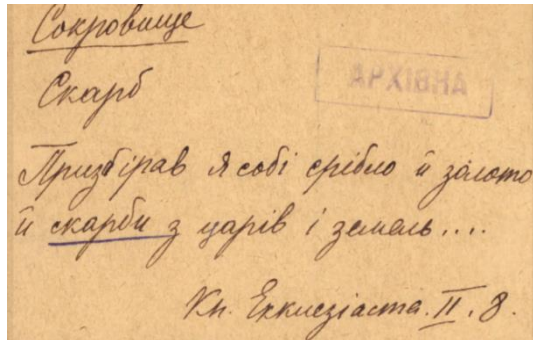 Сокровище
АРХІВНА
Скарб
Призбірав я собі срібло й золото
й скарби з царів і земель....
Кн. Екклезіаста. II. 8.